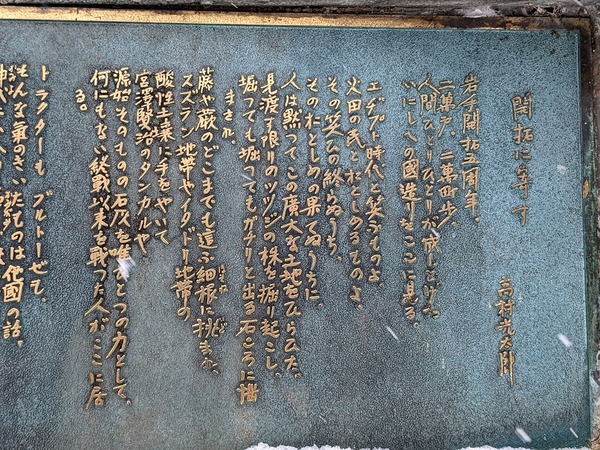 開拓に寄す
高村光太郎
岩手開拓五周年、
二萬戸、二萬町歩、
人間ひとりひとりが成しとげた
いにしへの國造りをここに見る。
エヂプト時代と笑ふものよ、
火田の民とおとしめるものよ、
その笑ひの終らぬうち、
そのおとしめの果てぬうちに、
人は黙つてこの廣大な土地をひらいた。
見渡す限りのツツジの株を掘り起こし、
掘つても掘つてもガチリと出る石ころに惱
まされ、
藤や蕨のどこまでも這ふ細根に挑まれ、
スズラン地帯やイタドリ地帯の
酸性土壌に手をやいて
宮澤賢治のタンカルや
源始そのものの石灰を唯ひとつの力として、
何にもない終戦以来を戦つた人がここに居
る。
トラクターもブルトーゼも、
そんな氣のきいたものは他國の話、